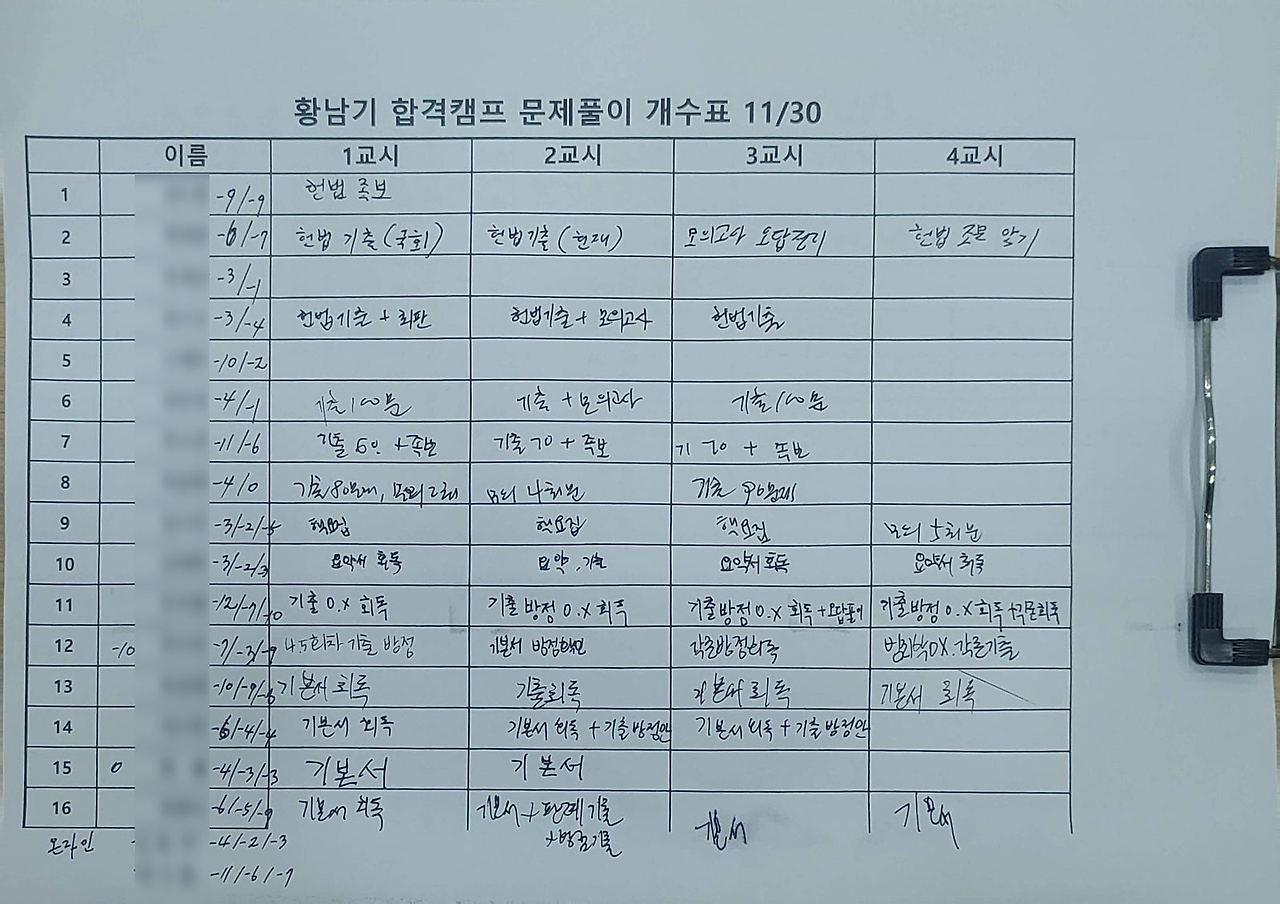 황남기 합격캠프 문제풀이 개수표 11/30
이름 1교시 2교시 3교시 4교시
1 -9/-9 헌법 족보
2 -6/-7 헌법 기출(국회) 헌법기출(헌재) 모의고사 오답정리 헌법 조문 암기
3 -3/-1
4 -3/-4 헌법기출 + 최판 헌법기출 + 모의고사 헌법기출
5 -10/-2
6 -4/-1 기출100문 기출 + 모의고사 기출100문
7 -11/-6 기출 60 + 족보 기출 70 + 족보 기 70 + 족보
8 -4/0 기출80문제, 모의2회 모의 4회분 기출 90문제
9 -3/-2/-5 핵요집 핵요집 핵요집 모의 5회분
10 -3/-2/-3 요약서 회독 요약, 기출 요약서회독 요약서 회독
11 -12/-7/-10 기출 O.X 회독 기출 방점 O.X 회독 기출방점 O.X 회독+오답풀이 기출방점 O.X 회독+각론회독
12 -10 -7/-3/-9 4.5회차 기출 방점 기본서 방점확인 각론방점회독 OX.각론기출
13 -10/-9/-8 기본서 회독 기출회독 기본서 회독 기본서 회독
14 -6/-4/-4 기본서 회독 기본서 회독 + 기출방점만 기본서 회독 + 기출방점만
15 0 -4/-3/-3 기본서 기본서
16 -6/-5/-9 기본서 회독 기본서 + 판례기출 기본서 기본서
+방점기출
온라인 -4/-2/-3
-11/-6/-7